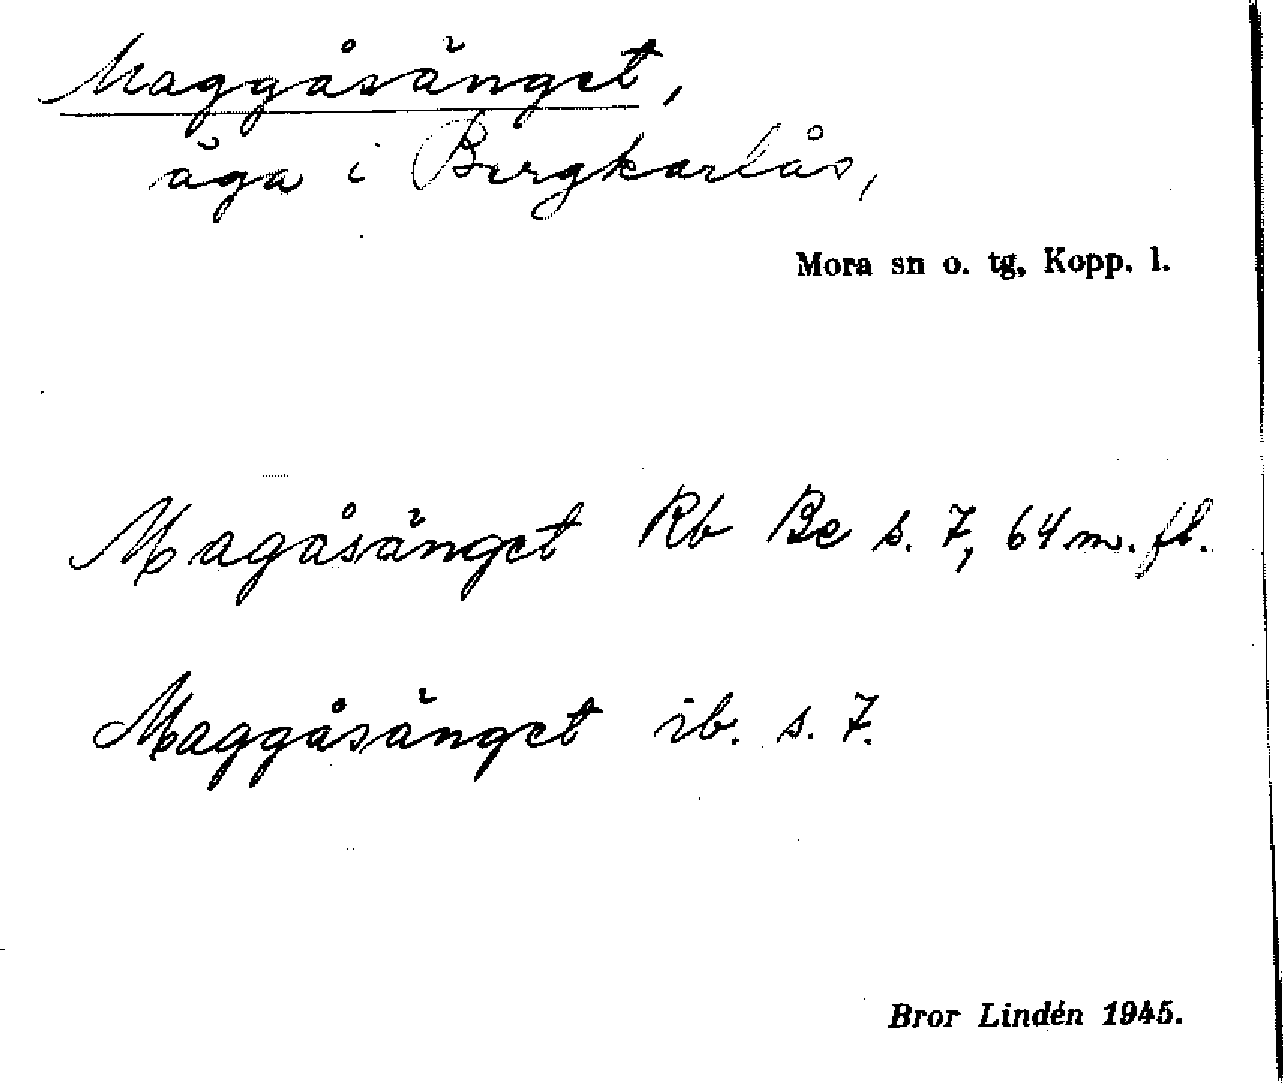 Maggåsänget,
äga i Bergkarlås,
Mora sn o. tg, Kopp. l.
Magåsänget Rb Be s. 7, 64 m. fl.
Maggåsänget ib. s. 7.
Bror Lindén 1945.